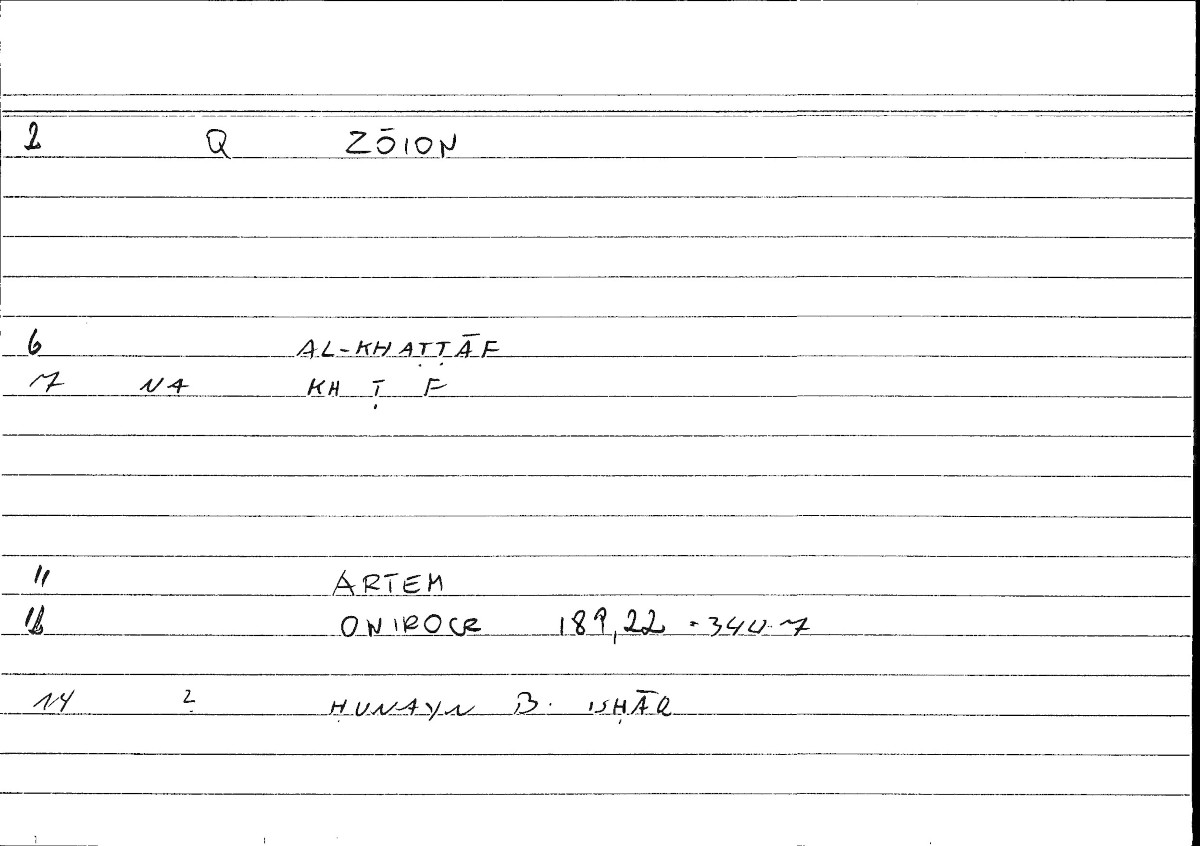 2 Q ZŌION
6 AL-KHAṬṬĀF
7 NA KH Ṭ F
11 ARTEM
12 ONIROCR 189,22 · 340.7
14 2 ḤUNAYN B. ISḤĀQ